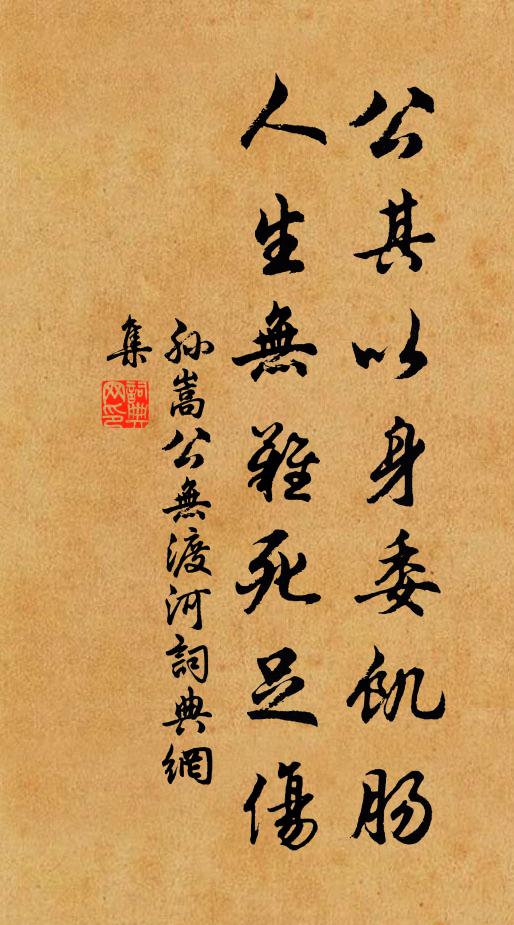 公其以身委飢肠
人生無難死足傷
孙嵩公無渡河詞典網
集
詞典
网印